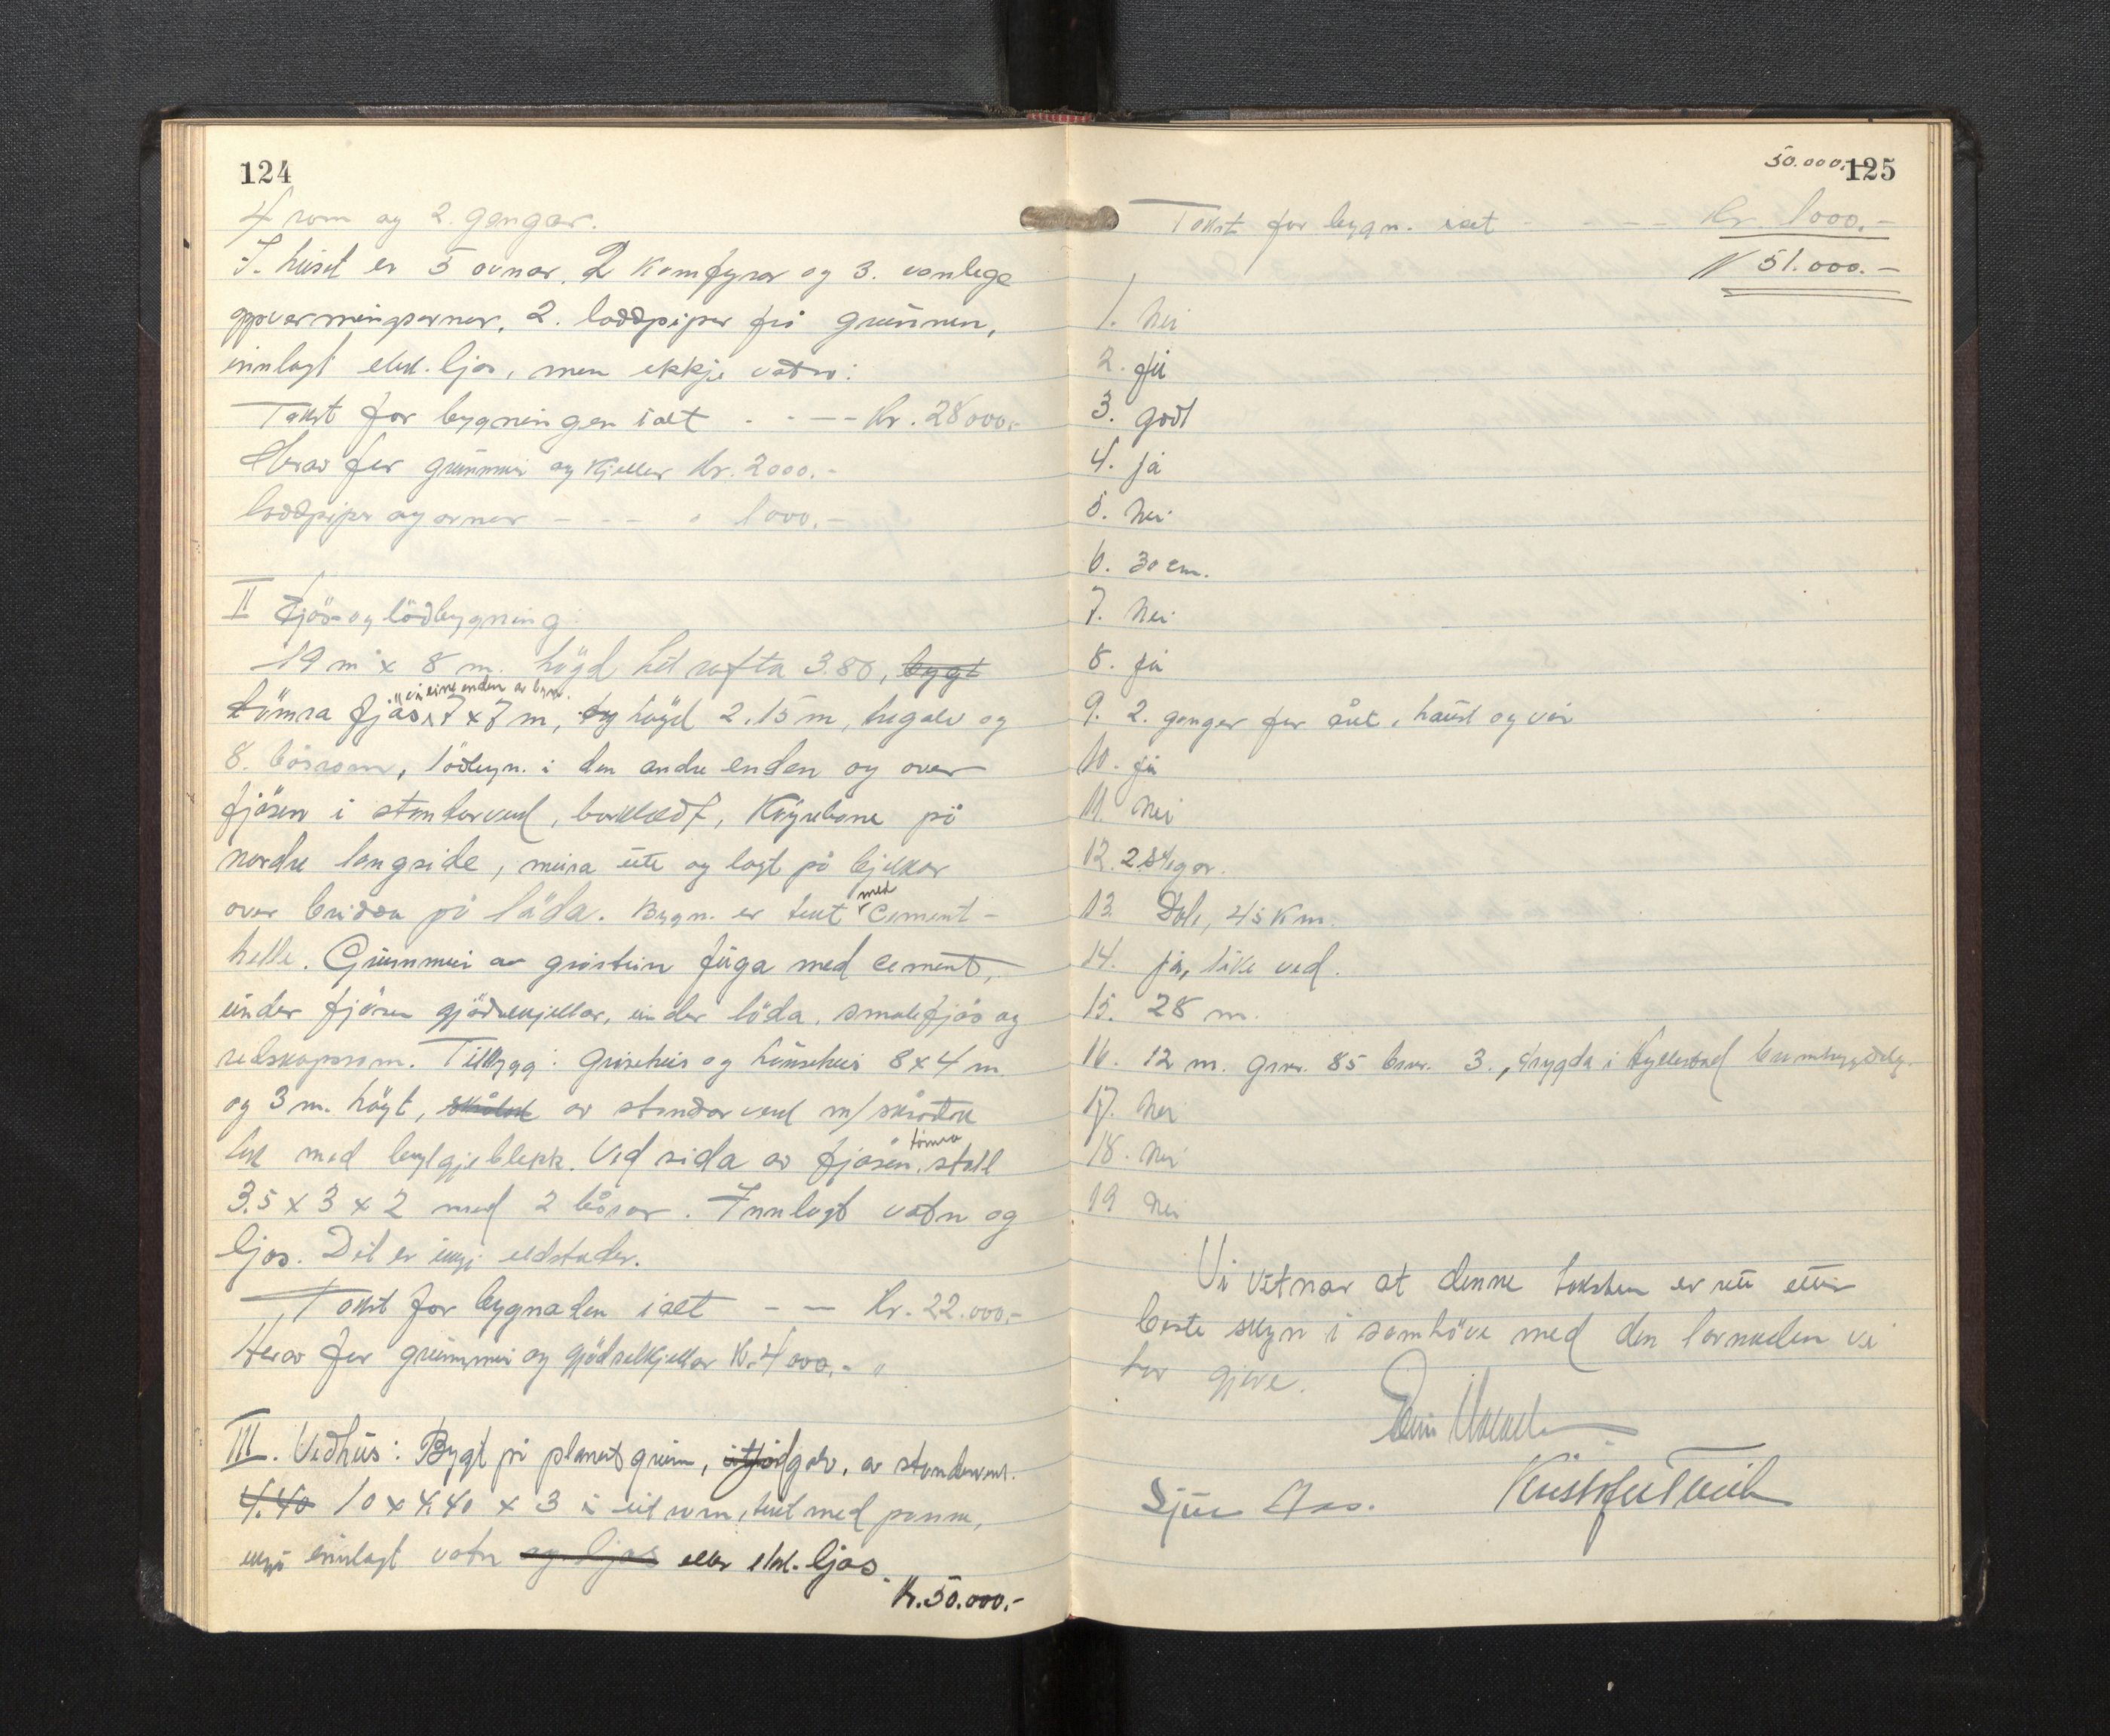 124
4 rom og 2. gangar.
I. huset er 5 ovnar, 2 komfyrar og 3. vanlege
oppvarmingsovnar, 2. loddpipor frå grunnen,
innlagt elek. ljos, men ikkje vatn.
Takst for bygningen ialt - - - kr. 28000,-
Herav for grunnmur og kjellar kr. 2000.-
loddpipor og ovnar - - - " 1000.-
II Fjös- og lödbygning
19 m x 8 m. högd til rafta 3.80, bygt
tömra fjös i eine enden av bygn. 7x7 m, og högd 2.15 m, tregolv og
8. båsrom, lödbygn. i den andre enden og over
fjösen i standarverk, bordkledt, Köyrebane på
nordre langside, mura ute og lagt på bjelkar
over bridda på löda. Bygn. er tekt med Cement-
helle. Grunnmur av gråstein fuga med cement,
under fjösen gjödselkjellar, under löda, smalefjös og
redskapsrom. Tilbygg: Grisehus og hönsehus 8x4 m.
og 3 m. högt, av standarverk m/skråtak
tekt med bylgjeblekk. Ved sida av fjösen, tömra stall
3.5 x 3 x 2 med 2 båsar. Innlagt vatn og
ljos. Det er ingi eldstader.
Takst for bygnaden ialt - - kr. 22.000,-
Herav for grunnmur og gjödselkjellar kr. 4000,- "
III. Vedhus: Bygt på planert grunn, golv, av standarverk.
4.40 10 x 4.40 x 3 i eit rom, tekt med panne,
ingi innlagt vatn og ljos eller elek. ljos.
Kr. 50.000.-
50.000,-
125
Takst for bygn. ialt - - - - Kr. 1000.-
Kr 51.000.-
1. Nei
2. ja
3. godt
4. ja
5. Nei
6. 30 cm.
7. Nei
8. ja
9. 2. ganger for året, haust og vår
10. ja
11. Nei
12. 2 stigar.
13. Dale, 45 km.
14. ja, like ved.
15. 28 m.
16. 12 m. gnr. 85 bnr. 3., trygda i Hyllestad brannbygdelag.
17. Nei
18. Nei
19 Nei
Vi vitnar at denne taksten er rett etter
beste skyn i samhöve med den lovnaden vi
har gjeve.
Sjur Aas.